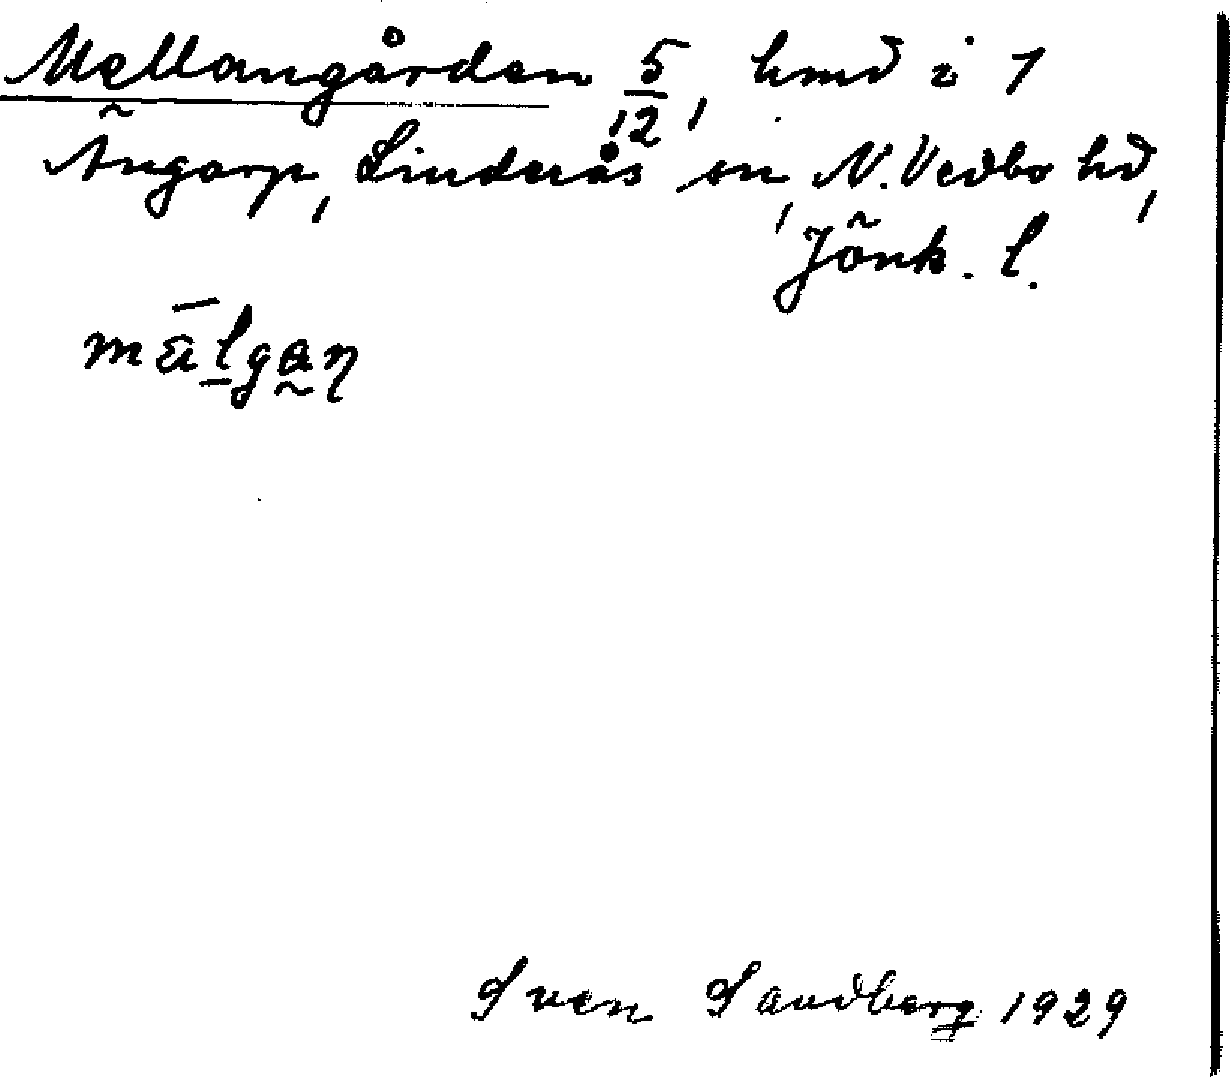 Mellangården 5/12, hmd i 1
Ängarp, Linderås sn, N. Vedbo hd,
Jönk. l.
mälgan
Sven Sandberg 1929